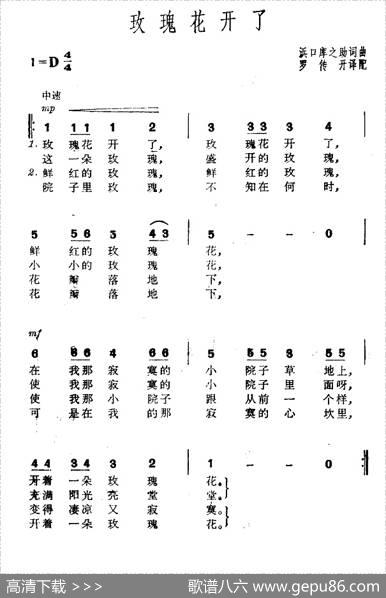 玫瑰花开了
1=D 4/4
浜口库之助词曲
罗传开译配
中速
mp
1 11 1 2 3 33 3 4
1. 玫瑰花开了, 玫瑰花开了,
这一朵玫瑰, 盛开的玫瑰,
2. 鲜红的玫瑰, 鲜红的玫瑰,
院子里玫瑰, 不知在何时,
5 56 3 43 5 - - 0
鲜红的玫瑰花,
小小的玫瑰花,
花瓣落地下,
花瓣落地下,
mf
6 66 4 66 5 55 3 55
在我那寂寞的小院子草地上,
使我那寂寞的小院子里面呀,
使我那小院子跟从前一个样,
可是在我的那寂寞的心坎里,
44 34 3 2 1 - - 0
开着一朵玫瑰花。
充满阳光亮堂堂。
变得凄凉又寂寞。
开着一朵玫瑰花。
高清下载 >>>
歌谱八六 www.gepu86.com